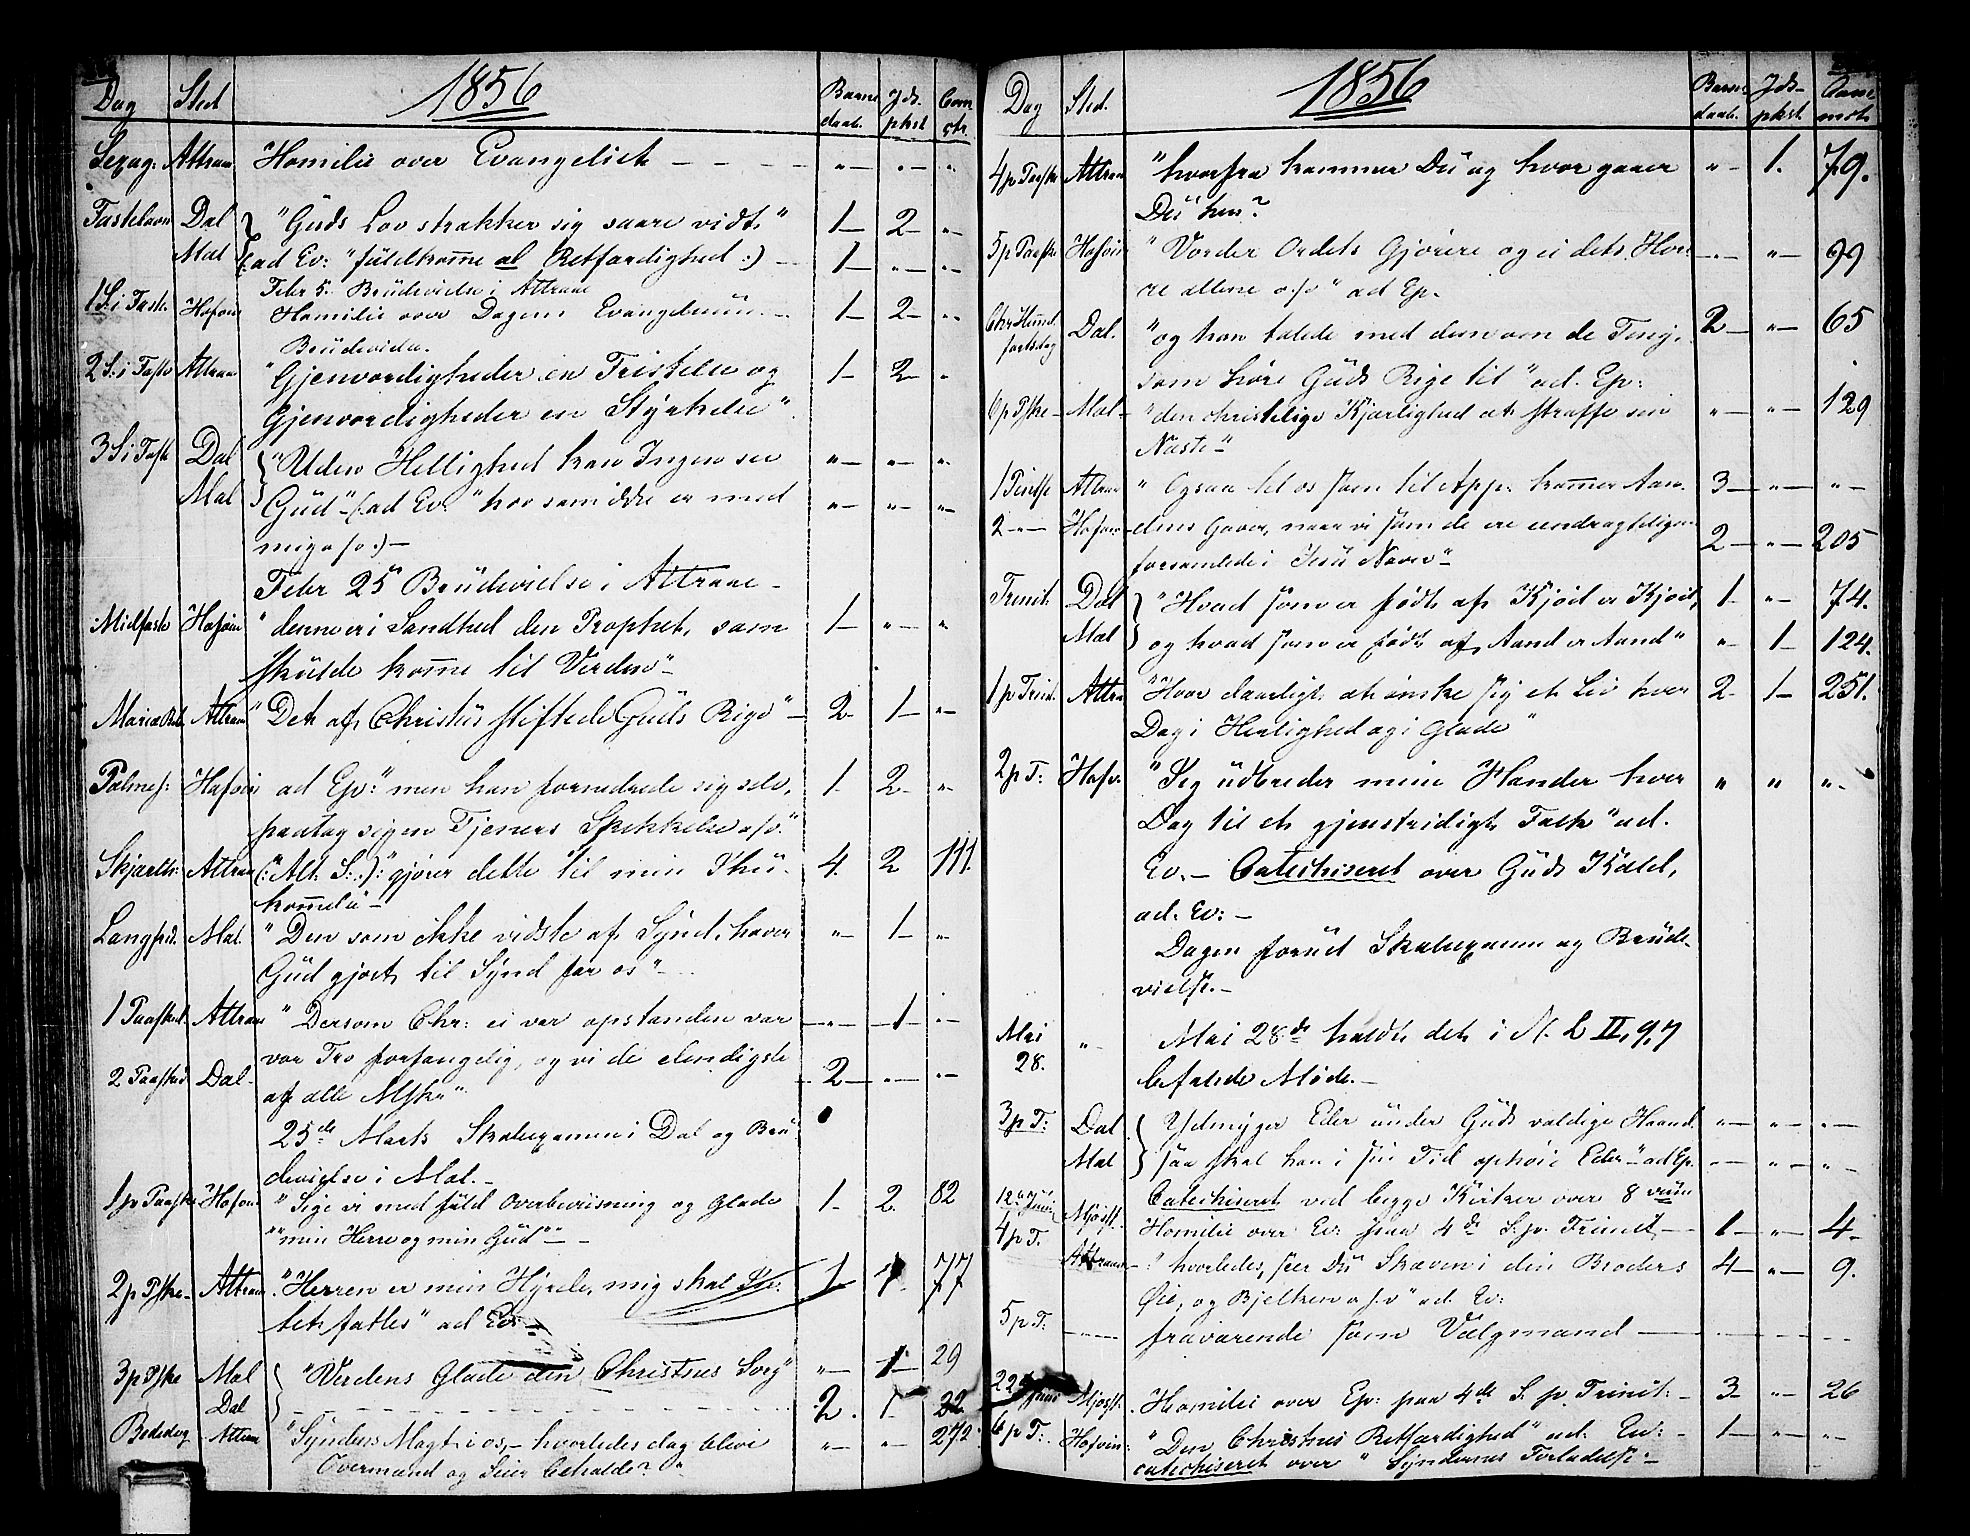 Dag Sted 1856 Barne daab. Jds. pkst Com ctr.
Sexag. Attraae Homilie over Evangeliet - - - - „ - „ - „
Fastelavn Dal "Guds Lov strækker sig saare vidt" 1 - 2 - „
Mæl (: ad Ev: "fuldkomme al Retfærdighed :) - 1 - „ - „
Febr 5. Brudevielse i Attraae
1 S. i Faste. Hofvin Homilie over Dagens Evangelium. - 1 - 2 - „
Brudevielse.
2 S. i Faste Attraae "Gjenvordigheder en Fristelse og 1 - 2 - „
Gjenvordigheder en Styrkelse".
3 S i Faste Dal "Uden Hellighed kan Ingen see „ - „ - „
Mæl Gud" - (: ad Ev. "hvo som ikke er med „ - „ - „
mig o s v :) -
Febr 25 Brudevielse i Attraae -
Midfaste Hofvin "denne er i Sandhed den Prophet, som 1 - „ - „
skulde komme til Verden"
Mariæ Beb. Attraae "Det af Christus stiftede Guds Rige" - 2 - 1 - „ -
Palmes: Hofvin ad Ep: "men han fornedrede sig selv, 1 - 2 - „ -
paatog sig en Tjeners Skikkelse o s v."
Skjærth: Attraae (: Alt. S: :) "gjører dette til min Ihu- 4. 2 111.
kommelse -
Langfred. Mæl. "Den som ikke vidste af Synd, haver „ - 1 - „
Gud gjort til Synd for os" -
1 Paasked. Attraae "Dersom Chr: ei var opstanden var - „ - 1 - „ -
vor Tro forfængelig, og vi de elendigste
2 Paasked Dal - af alle Msk" - 2 - „ - „ -
25de Marts Skoleexamen i Dal og Bru-
devielse i Mæl. -
1 p Paaske Hofvin "Sige vi med fuld Overbeviisning og Glæde 1 - 2. 82
"min Herre og min Gud" -
2 p Pske - Attraae "Herren er min Hyrde, mig skal In- 1 1 77
tet fattes" ad Ev: -
3 p Pske Mæl "Verdens Glæde den Christnes Sorg" „ - 1 - 29
Dal - - - - - - 2. 1 - 22
Bededag Attraae "Syndens Magt i os, - hvorledes dog blive „ - „ - 272
Overmand og Seier beholde?"
Dag Sted. 1856 Barne daab. Jds- pkst Com mctr
4 p Paaske Attraae "hvorfra kommer Du og hvor gaaer „ - 1. 79.
Du hen?
5 p Paaske Hofvin "Vorder Ordets Gjørere og ei dets Hø- - „ - „ - 99
re alene o s v" ad Ep.
Chr Himmel- fartsdag Dal. "og han talede med dem om de Ting, 2 - „ - 65
som høre Guds Rige til" ad. Ep:
6 p Pske - Mæl - "den christelige Kjærlighed at straffe sin „ - „ - 129
Næste"
1 Pintse Attraae "Ogsaa til os som til App: kommer Aan- 3 - „ - „ -
2 - „ - Hofvin - dens Gaver, naar vi som de ere eendrægteligen 2 - „ - 205
forsamlede i Jesu Navn"
Trinit. Dal "Hvad som er født af Kjød er Kjød, 1 - „ - 74.
Mæl og hvad som er født af Aand er Aand" „ - 1 - 124.
1 p Trinit. Attraa "Hvor daarligt at ønske sig et Liv hver 2 - 1 - 251.
Dag i Herlighed og i Glæde"
2 p T: Hofv. "Jeg udbreder mine Hænder hver „ „ „ -
Dag til et gjenstridigt Folk" ad.
Ev. - Catechiseret over Guds Kald,
ad. Ev: -
Dagen forud Skoleexamen og Brude-
vielse. -
Mai 28. „ - Mai 28de holdt det i N. L II, 9,7
befalede Møde. -
3 p T: Dal "Ydmyger Eder under Guds vældige Haand „ - „ - „ -
Mæl saa skal han i sin Tid ophøie Eder" - ad Ep. - „ - „ - „ -
12te Juni Mjøsst. Catechiseret ved begge Kirker over 8
4 p T. Homilie over Ev: paa 4de S. p. Trinit - 1 - „ - 4 -
Attraae - "hvorledes, seer Du Skæven i din Broders 4 - „ - 9.
Øie, og Bjelken o s v" ad. Ev:
5 p T: - - - fraværende som Valgmand - - - „ -
22de Juni Mjøsst. Homilie over Ep: paa 4de S. p. Trinit: - 3 - „ - 26
6 p T: Hofvin: "Den Christnes Retfærdighed" ad. Ev: - 1 - „ - „ -
catechiseret over "Syndernes Forladelse" -